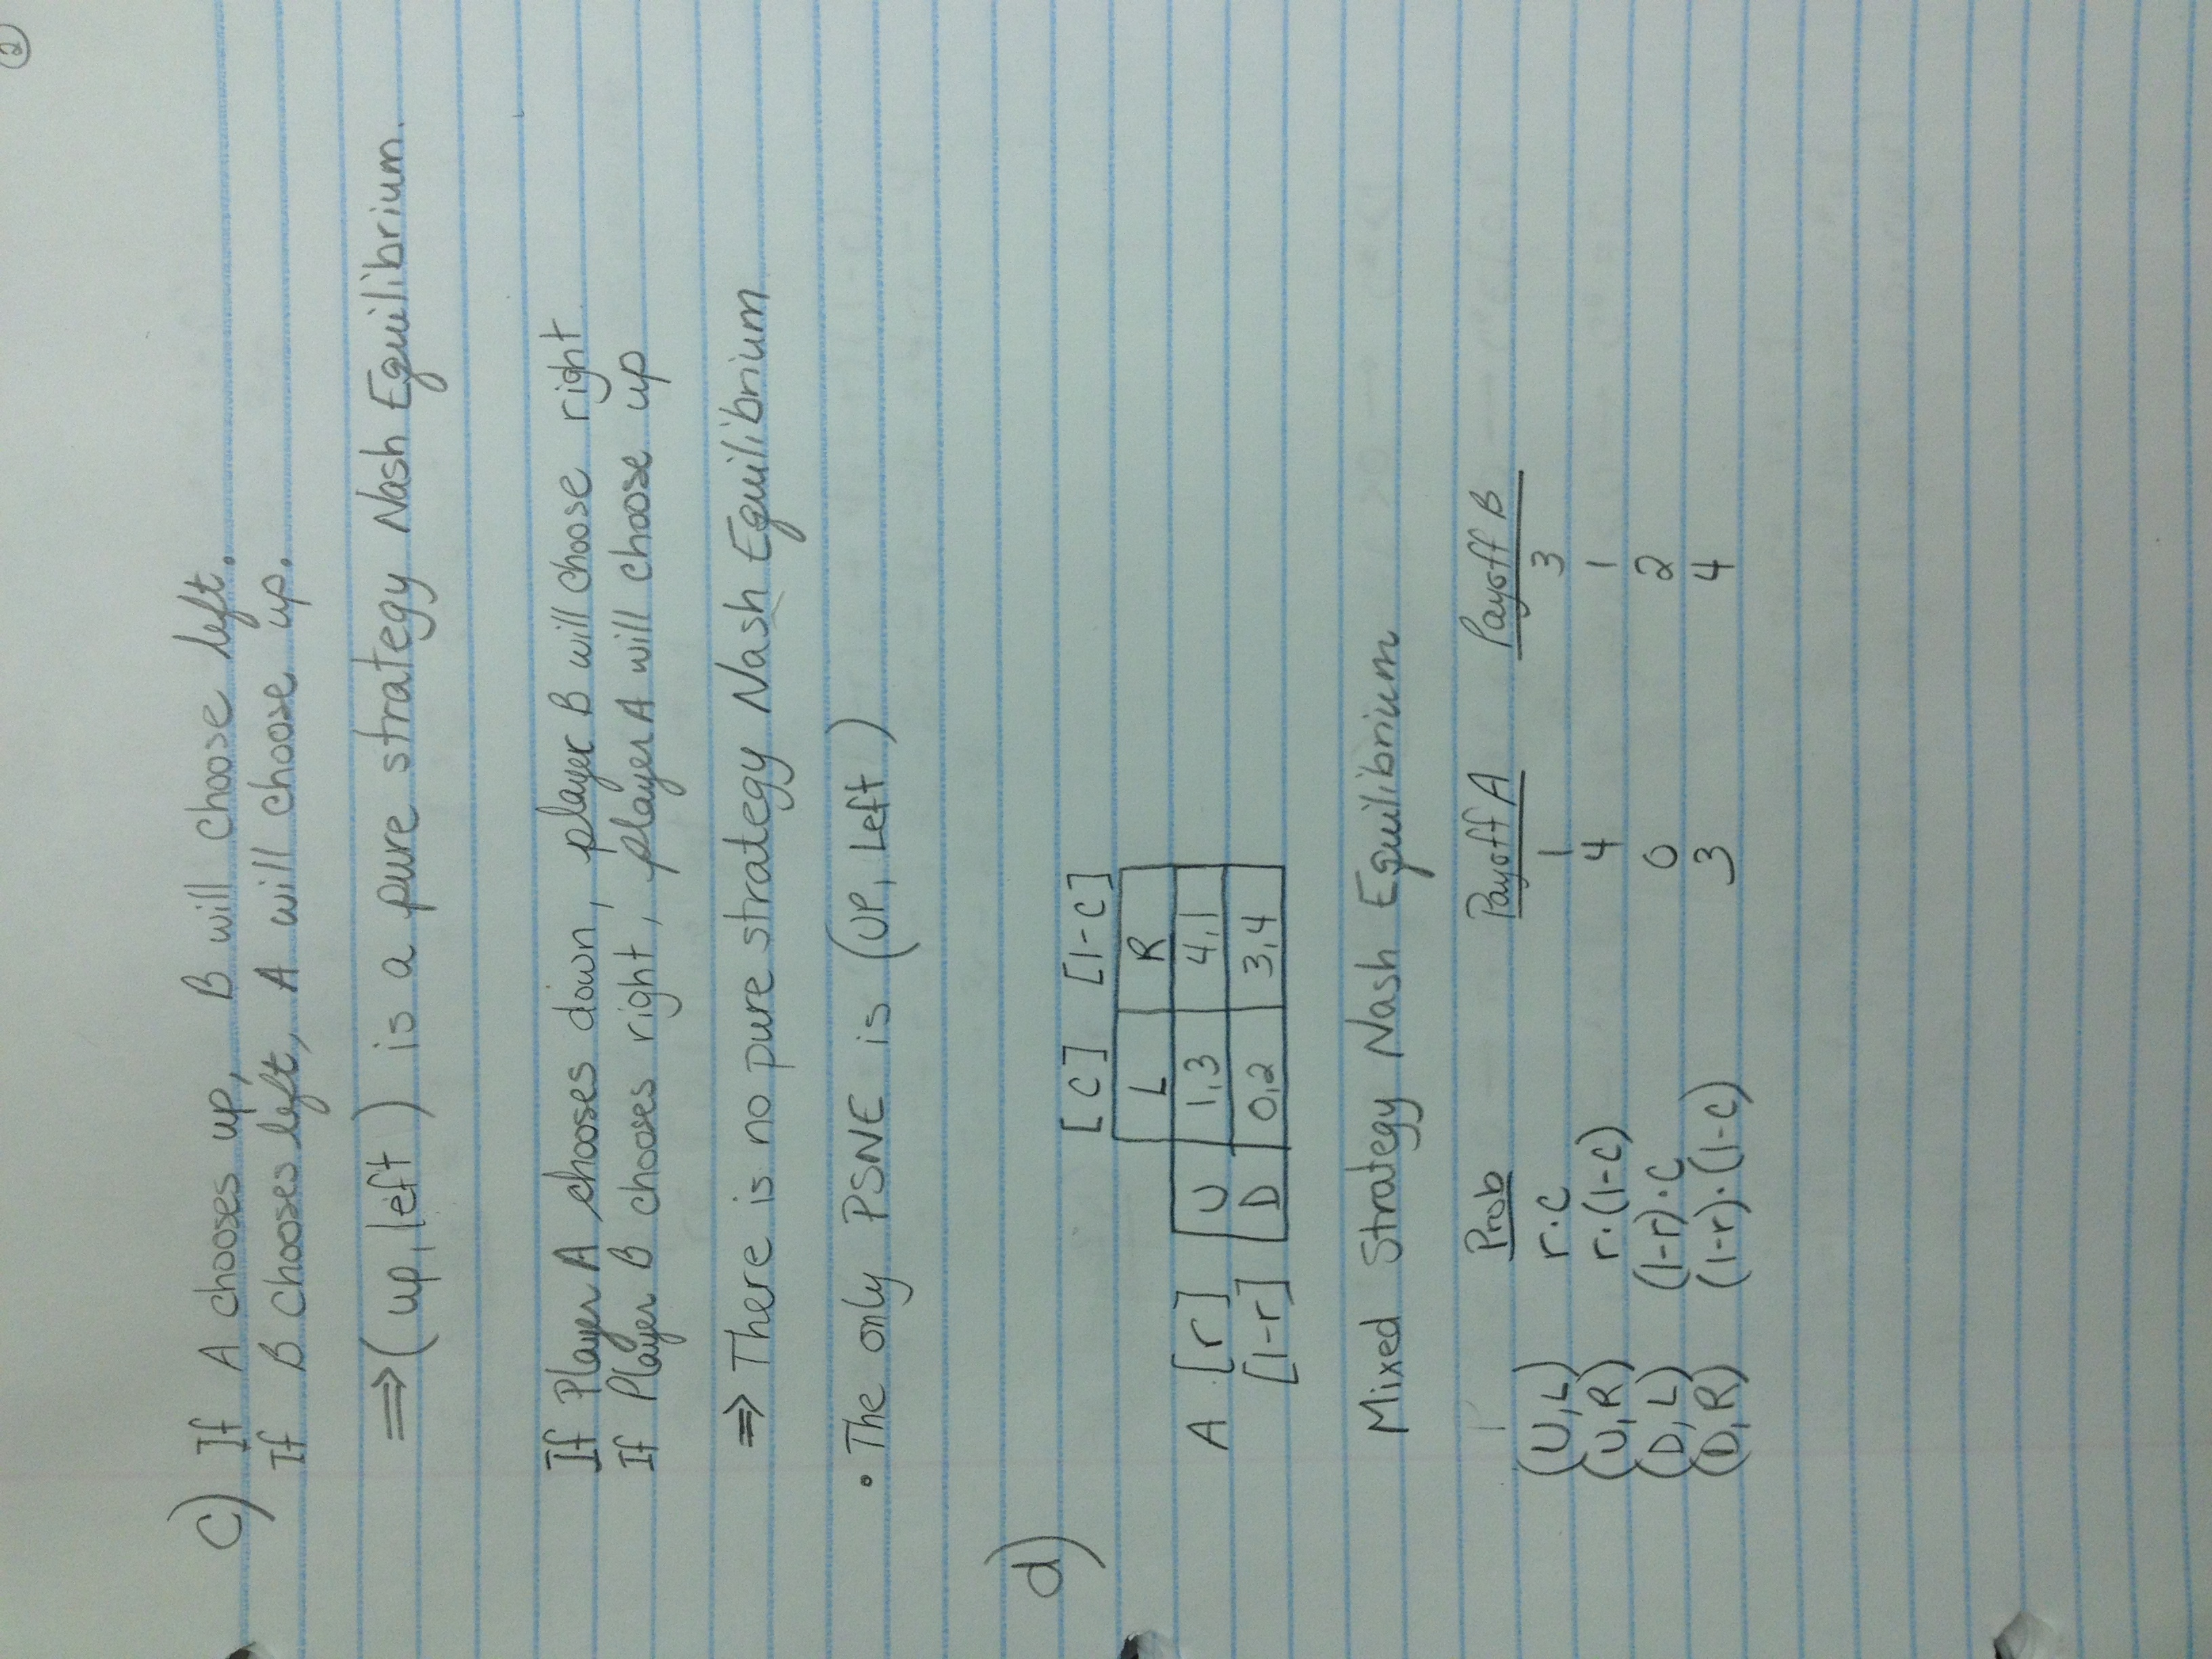 ②
c) If A chooses up, B will choose left.
If B chooses left, A will choose up.
⇒ (up, left) is a pure strategy Nash Equilibrium.
If Player A chooses down, player B will choose right
If Player B chooses right, player A will choose up
⇒ There is no pure strategy Nash Equilibrium
• The only PSNE is (UP, Left)
d)
[c] [1-c]
L R
A [r] U 1,3 4,1
[1-r] D 0,2 3,4
Mixed Strategy Nash Equilibrium
Prob Payoff A Payoff B
(U,L) r·c 1 3
(U,R) r·(1-c) 4 1
(D,L) (1-r)·c 0 2
(D,R) (1-r)·(1-c) 3 4